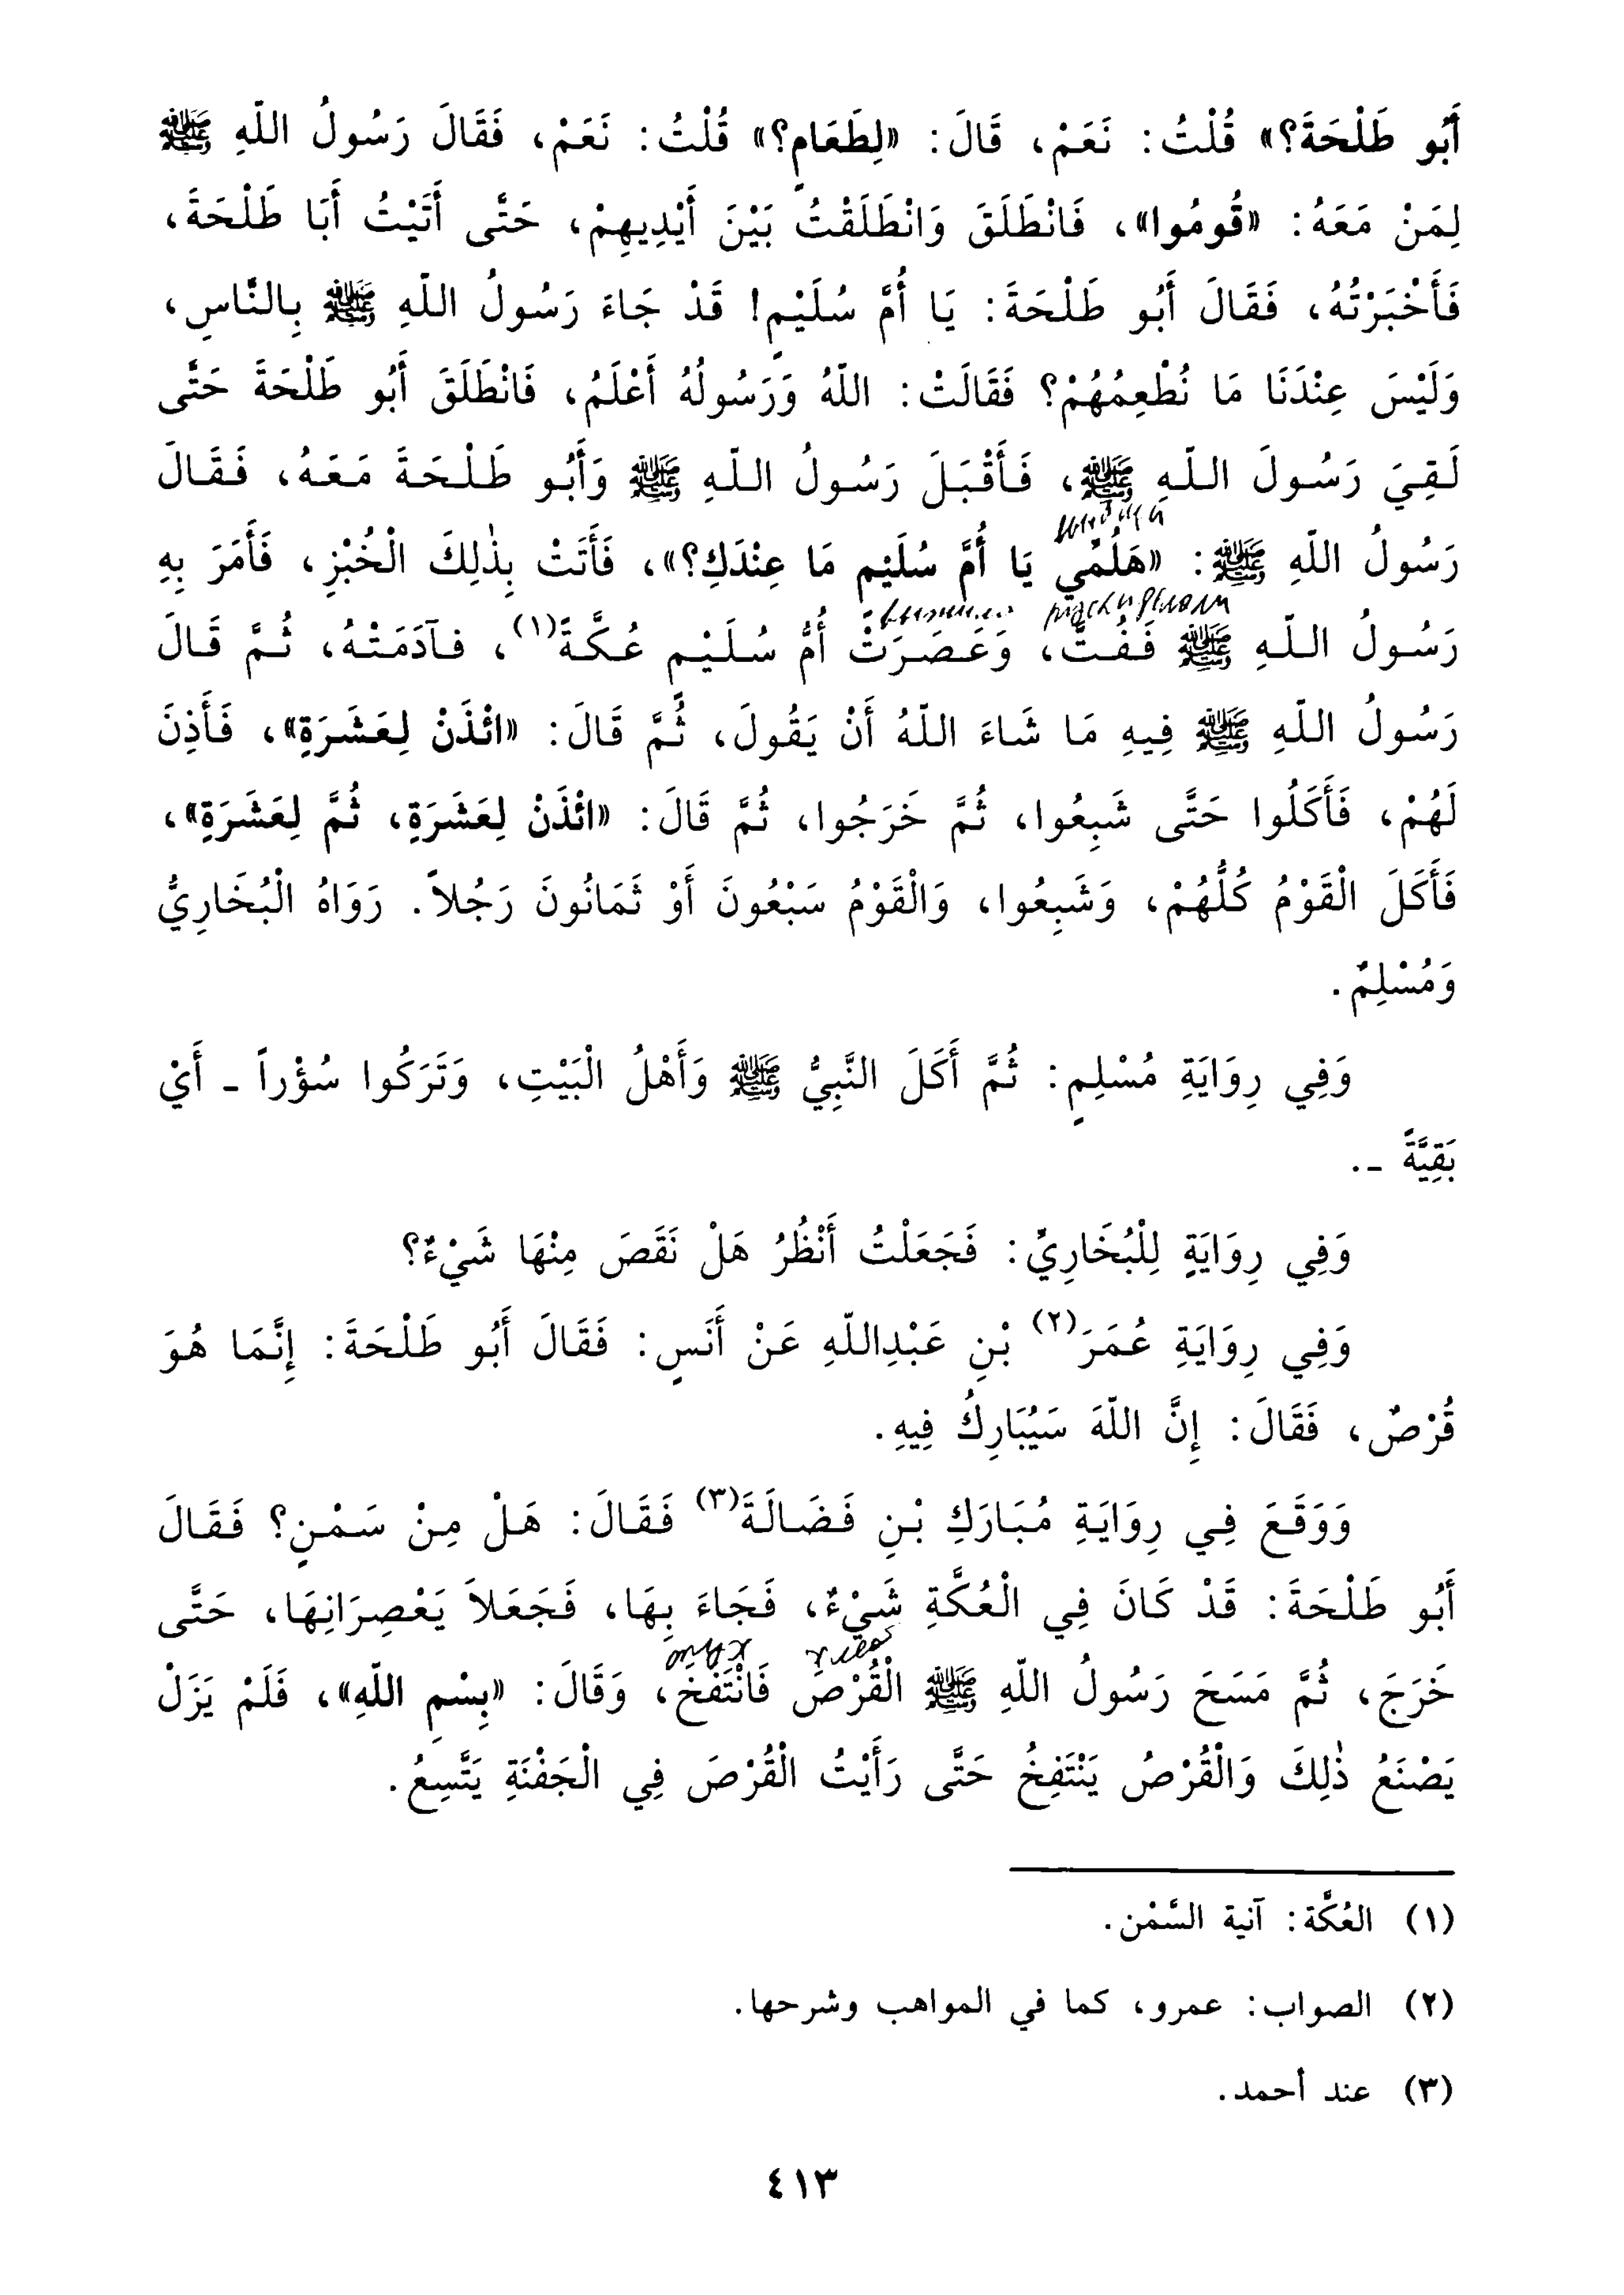 أَبُو طَلْحَةَ؟» قُلْتُ: نَعَمْ، قَالَ: «لِطَعَامٍ؟» قُلْتُ: نَعَمْ، فَقَالَ رَسُولُ اللّهِ ﷺ
لِمَنْ مَعَهُ: «قُومُوا»، فَانْطَلَقَ وَانْطَلَقْتُ بَيْنَ أَيْدِيهِمْ، حَتَّى أَتَيْتُ أَبَا طَلْحَةَ،
فَأَخْبَرْتُهُ، فَقَالَ أَبُو طَلْحَةَ: يَا أُمَّ سُلَيْمٍ! قَدْ جَاءَ رَسُولُ اللّهِ ﷺ بِالنَّاسِ،
وَلَيْسَ عِنْدَنَا مَا نُطْعِمُهُمْ؟ فَقَالَتْ: اللّهُ وَرَسُولُهُ أَعْلَمُ، فَانْطَلَقَ أَبُو طَلْحَةَ حَتَّى
لَقِيَ رَسُولَ اللّهِ ﷺ، فَأَقْبَلَ رَسُولُ اللّهِ ﷺ وَأَبُو طَلْحَةَ مَعَهُ، فَقَالَ
رَسُولُ اللّهِ ﷺ: «هَلُمِّي يَا أُمَّ سُلَيْمٍ مَا عِنْدَكِ؟»، فَأَتَتْ بِذٰلِكَ الْخُبْزِ، فَأَمَرَ بِهِ
رَسُولُ اللّهِ ﷺ فَفُتَّ، وَعَصَرَتْ أُمُّ سُلَيْمٍ عُكَّةً(١)، فآدَمَتْهُ، ثُمَّ قَالَ
رَسُولُ اللّهِ ﷺ فِيهِ مَا شَاءَ اللّهُ أَنْ يَقُولَ، ثُمَّ قَالَ: «ائْذَنْ لِعَشَرَةٍ»، فَأَذِنَ
لَهُمْ، فَأَكَلُوا حَتَّى شَبِعُوا، ثُمَّ خَرَجُوا، ثُمَّ قَالَ: «ائْذَنْ لِعَشَرَةٍ، ثُمَّ لِعَشَرَةٍ»،
فَأَكَلَ الْقَوْمُ كُلُّهُمْ، وَشَبِعُوا، وَالْقَوْمُ سَبْعُونَ أَوْ ثَمَانُونَ رَجُلاً. رَوَاهُ الْبُخَارِيُّ
وَمُسْلِمٌ.
وَفِي رِوَايَةِ مُسْلِمٍ: ثُمَّ أَكَلَ النَّبِيُّ ﷺ وَأَهْلُ الْبَيْتِ، وَتَرَكُوا سُؤْراً ـ أَيْ
بَقِيَّةً ـ.
وَفِي رِوَايَةٍ لِلْبُخَارِيِّ: فَجَعَلْتُ أَنْظُرُ هَلْ نَقَصَ مِنْهَا شَيْءٌ؟
وَفِي رِوَايَةِ عُمَرَ(٢) بْنِ عَبْدِاللّهِ عَنْ أَنَسٍ: فَقَالَ أَبُو طَلْحَةَ: إِنَّمَا هُوَ
قُرْصٌ، فَقَالَ: إِنَّ اللّهَ سَيُبَارِكُ فِيهِ.
وَوَقَعَ فِي رِوَايَةِ مُبَارَكِ بْنِ فَضَالَةَ(٣) فَقَالَ: هَلْ مِنْ سَمْنٍ؟ فَقَالَ
أَبُو طَلْحَةَ: قَدْ كَانَ فِي الْعُكَّةِ شَيْءٌ، فَجَاءَ بِهَا، فَجَعَلاَ يَعْصِرَانِهَا، حَتَّى
خَرَجَ، ثُمَّ مَسَحَ رَسُولُ اللّهِ ﷺ الْقُرْصَ فَانْتَفَخَ، وَقَالَ: «بِسْمِ اللّهِ»، فَلَمْ يَزَلْ
يَصْنَعُ ذٰلِكَ وَالْقُرْصُ يَنْتَفِخُ حَتَّى رَأَيْتُ الْقُرْصَ فِي الْجَفْنَةِ يَتَّسِعُ.
(١) العُكَّة: آنية السَّمْن.
(٢) الصواب: عمرو، كما في المواهب وشرحها.
(٣) عند أحمد.
٤١٣